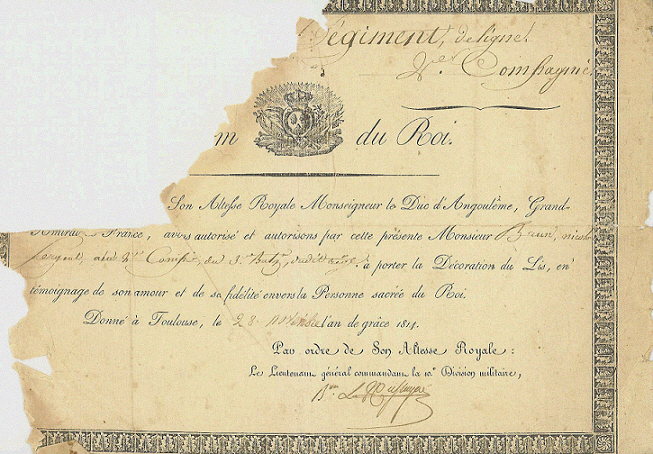 Régiment, de ligne.
Compagnie.
m du Roi.
Son Altesse Royale Monseigneur le Duc d'Angoulême, Grand-
Amiral de France, avons autorisé et autorisons par cette présente Monsieur Braun,
Sergent, au du 3.e à porter la Décoration du Lis, en
témoignage de son amour et de sa fidélité envers la Personne sacrée du Roi.
Donné à Toulouse, le 28 l'an de grâce 1814.
Par ordre de Son Altesse Royale :
Le Lieutenant général commandant la 10.e Division militaire,